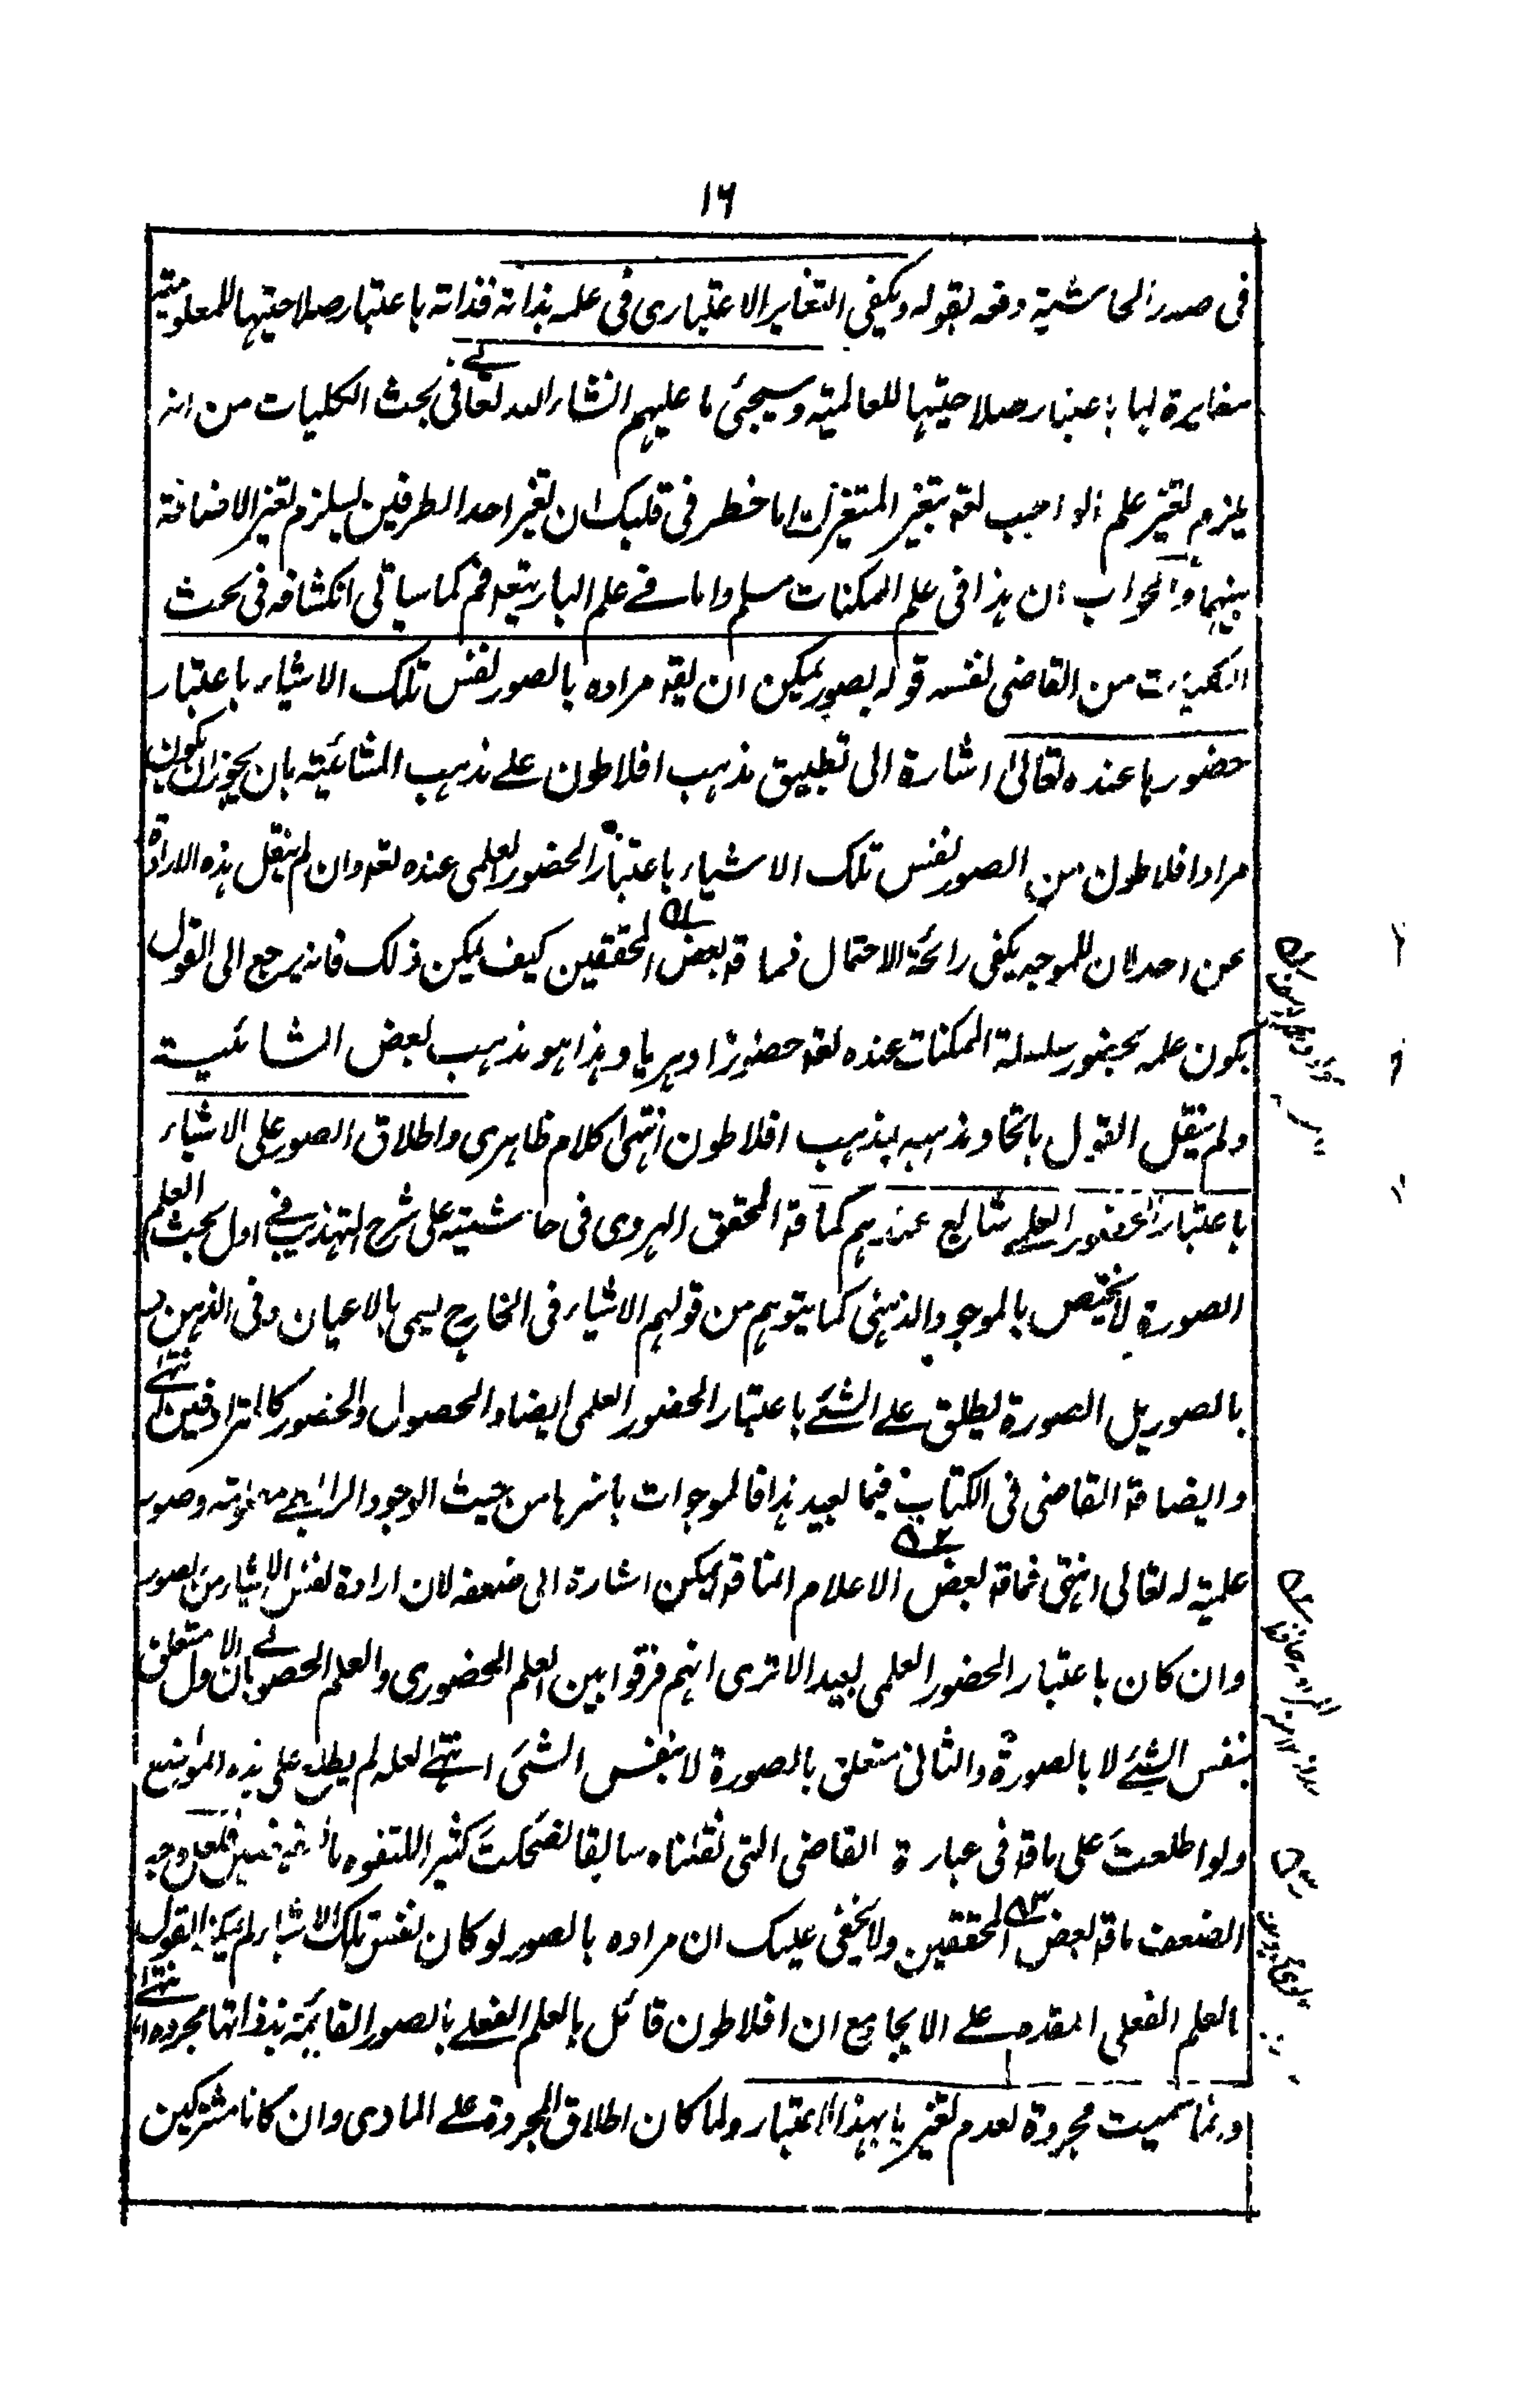 ١٦
فى صدر الحاشية دفعه بقوله ويكفى التغاير الاعتبارى فى علمه بذاته فذاته باعتبار صلاحيتها للمعلومية
مغايرة لها باعتبار صلاحيتها للعالمية وسيجئ ما عليهم انشاء الله تعالى فى بحث الكليات من انه
يلزم تغير علم الواجب تعه بتغير المتغيرات اما خطر فى قلبك ان تغير احد الطرفين يستلزم تغير الاضافة
بينهما والجواب ان هذا فى علم الممكنات مسلم واما فى علم البارى تعه فم كما سياتى انكشافه فى بحث
الكليات من القاضى نفسه قوله بصور يمكن ان يقه مراده بالصور نفس تلك الاشياء باعتبار
حضورها عنده تعالى اشارة الى تطبيق مذهب افلاطون على مذهب المشائية بان يجوز ان يكون
مراد افلاطون من الصور نفس تلك الاشياء باعتبار الحضور العلمى عنده تعه وان لم ينقل هذه الارادة
عن احد لان للموجه يكفى رائحة الاحتمال فما قه بعض المحققين كيف يمكن ذلك فانه يرجع الى القول
بكون علمه بحضور سلسلة الممكنات عنده تعه حضورا دهريا وهذا هو مذهب بعض المشائية
ولم ينقل القول باتحاد مذهبه بمذهب افلاطون انتهى كلام ظاهرى واطلاق الصور على الاشياء
باعتبار الحضور العلمى شايع عندهم كما قه المحقق الهروى فى حاشيته على شرح التهذيب فى اول بحث العلم
الصورة لا يختص بالموجود الذهنى كما يتوهم من قولهم الاشياء فى الخارج يسمى بالاعيان وفى الذهن
بالصور بل الصورة يطلق على الشئ باعتبار الحضور العلمى ايضا والحصول والحضور كالمترادفين انتهى
وايضا قه القاضى فى الكتاب فيما بعيد هذا فالموجودات باسرها من حيث الوجود الرابطى معلومة وصور
علمية له تعالى انتهى فما قه بعض الاعلام انما قه يمكن اشارة الى ضعفه لان ارادة نفس الاشياء من الصور
وان كان باعتبار الحضور العلمى بعيد الا ترى انهم فرقوا بين العلم الحضورى والعلم الحصولى بان الاول متعلق
بنفس الشئ لا بالصورة والثانى متعلق بالصورة لا بنفس الشئ انتهى لعله لم يطلع على هذه المواضع
ولو اطلعت على ما قه فى عبارة القاضى التى نقلناه سابقا لضحكت كثيرا فلعل وجه
الضعف ما قه بعض المحققين ولا يخفى عليك ان مراده بالصور لو كان نفس تلك الاشياء لم يمكن القول
بالعلم الفعلى المقدم على الايجاد مع ان افلاطون قائل بالعلم الفعلى بالصور القائمة بذواتها مجردة انتهى
وانما سميت مجردة لعدم تغيرها بهذا الاعتبار ولما كان اطلاق المجردة على المادى وان كانا مشتركين